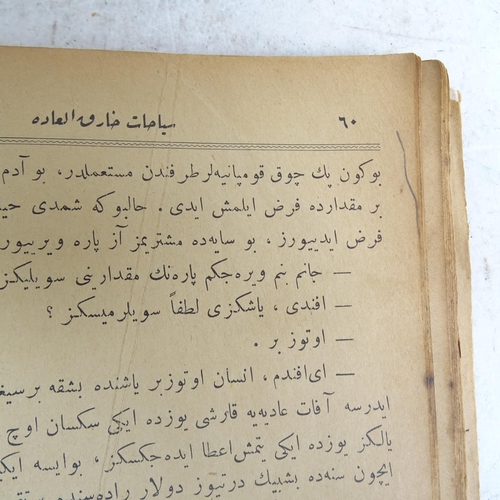 ٦٠ سیاحات خارق العاده
بوكون پك چوق قومپانیه‌لر طرفندن مستعملدر، بو آدم
بر مقدارده فرض ایلمش ایدی . حالبوكه شمدی
فرض ایدییورز ، بو سایه‌ده مشتریمز آز پاره ویرییور
— جانم بنم ویره‌جكم پاره‌نك مقدارینی سویلیكز
— افندی ، یاشكزی لطفاً سویلرمیسكز ؟
— اوتوز بر .
— ای افندم ، انسان اوتوز بر یاشنده بشقه بر
ایدرسه آفات عادیه‌یه قارشی یوزده ایكی سكسان اوچ
یالكز یوزده ایكی یتمش اعطا ایده‌جكسكز ، بوایسه
ایچون سنه‌ده بشبیك درتیوز دولار راده‌سنده